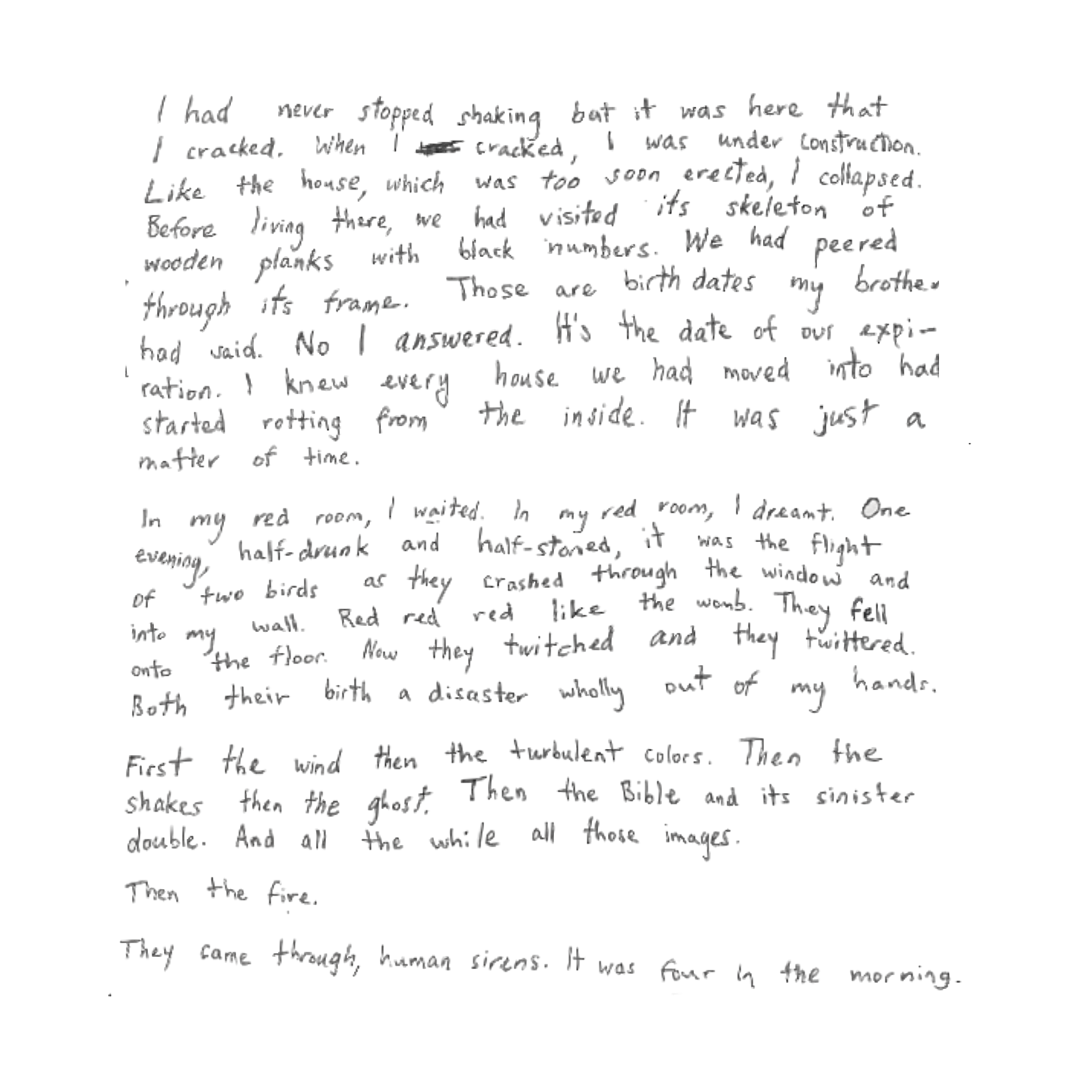 I had never stopped shaking but it was here that
I cracked. When I cracked, I was under construction.
Like the house, which was too soon erected, I collapsed.
Before living there, we had visited its skeleton of
wooden planks with black numbers. We had peered
through its frame. Those are birth dates my brother
had said. No I answered. It's the date of our expi-
ration. I knew every house we had moved into had
started rotting from the inside. It was just a
matter of time.
In my red room, I waited. In my red room, I dreamt. One
evening, half-drunk and half-stoned, it was the flight
of two birds as they crashed through the window and
into my wall. Red red red like the womb. They fell
onto the floor. Now they twitched and they twittered.
Both their birth a disaster wholly out of my hands.
First the wind then the turbulent colors. Then the
shakes then the ghost. Then the Bible and its sinister
double. And all the while all those images.
Then the fire.
They came through, human sirens. It was four in the morning.